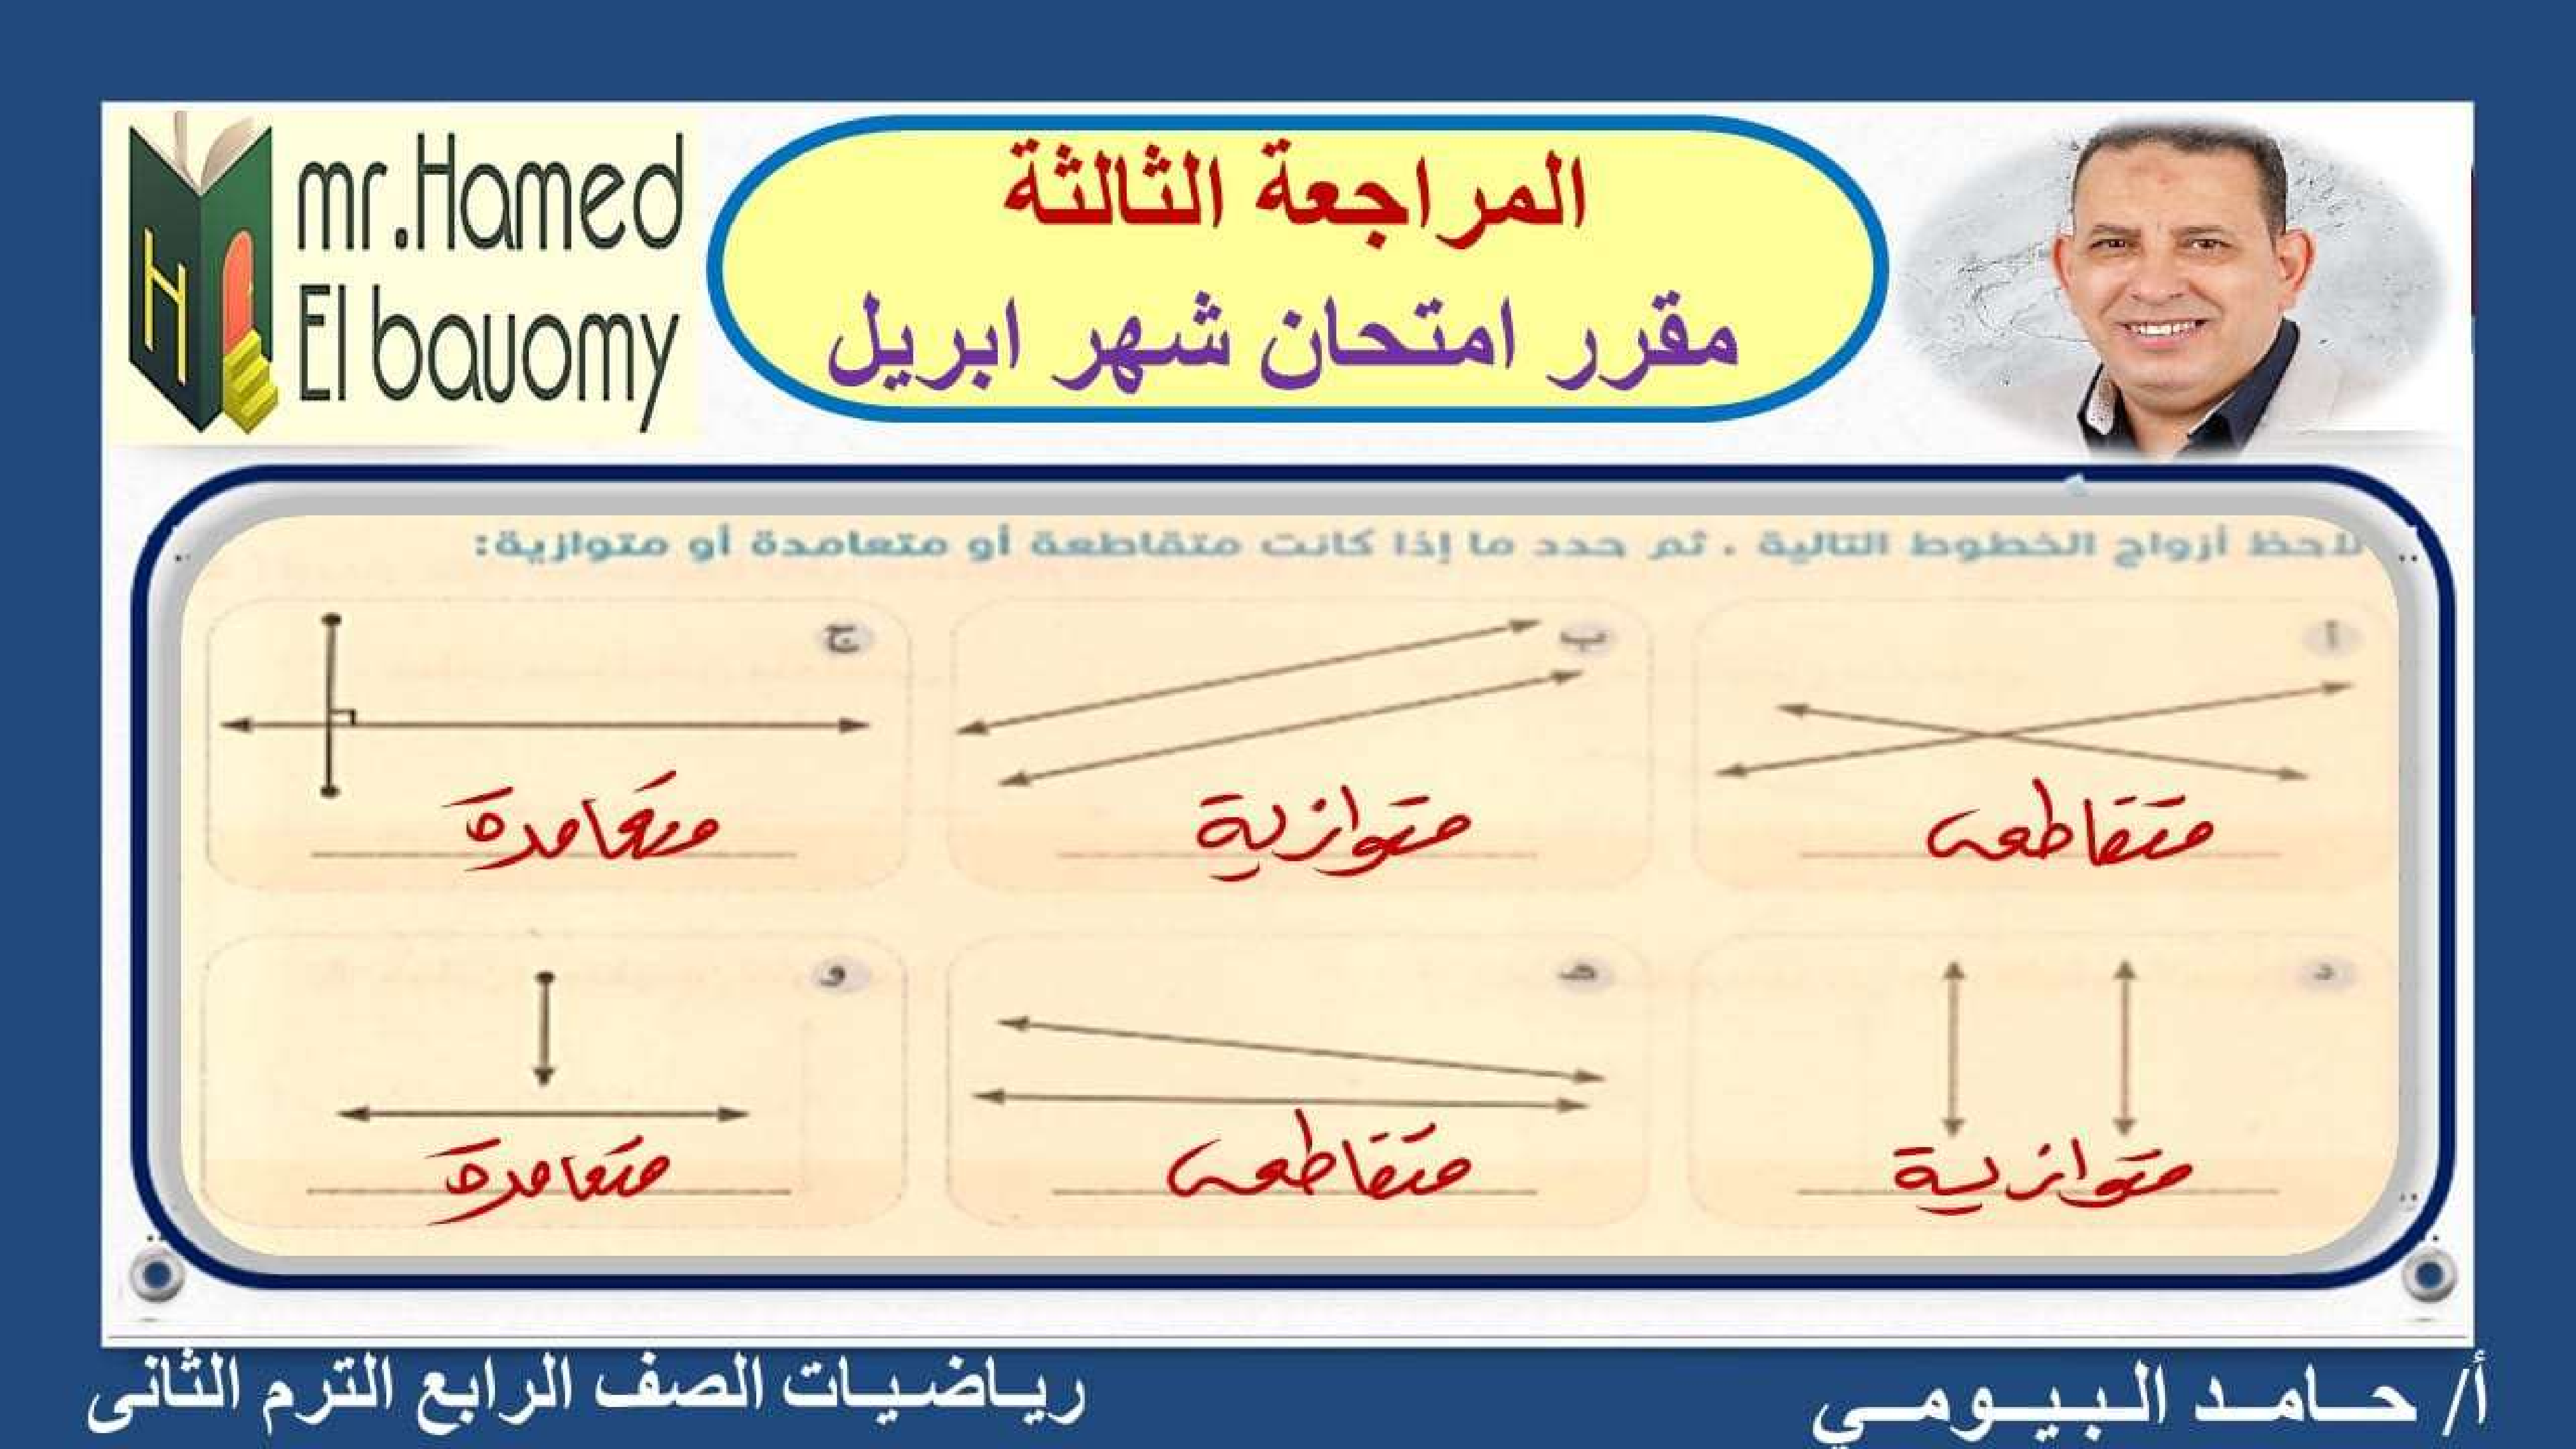 mr.Hamed
El bauomy
المراجعة الثالثة
مقرر امتحان شهر ابريل
لاحظ أزواج الخطوط التالية . ثم حدد ما إذا كانت متقاطعة أو متعامدة أو متوازية:
أ
متقاطعه
ب
متوازية
ج
متعامدة
د
متوازية
هـ
متقاطعه
و
متعامدة
أ/ حـامـد الـبـيـومـي
ريـاضـيـات الصف الرابع الترم الثانى